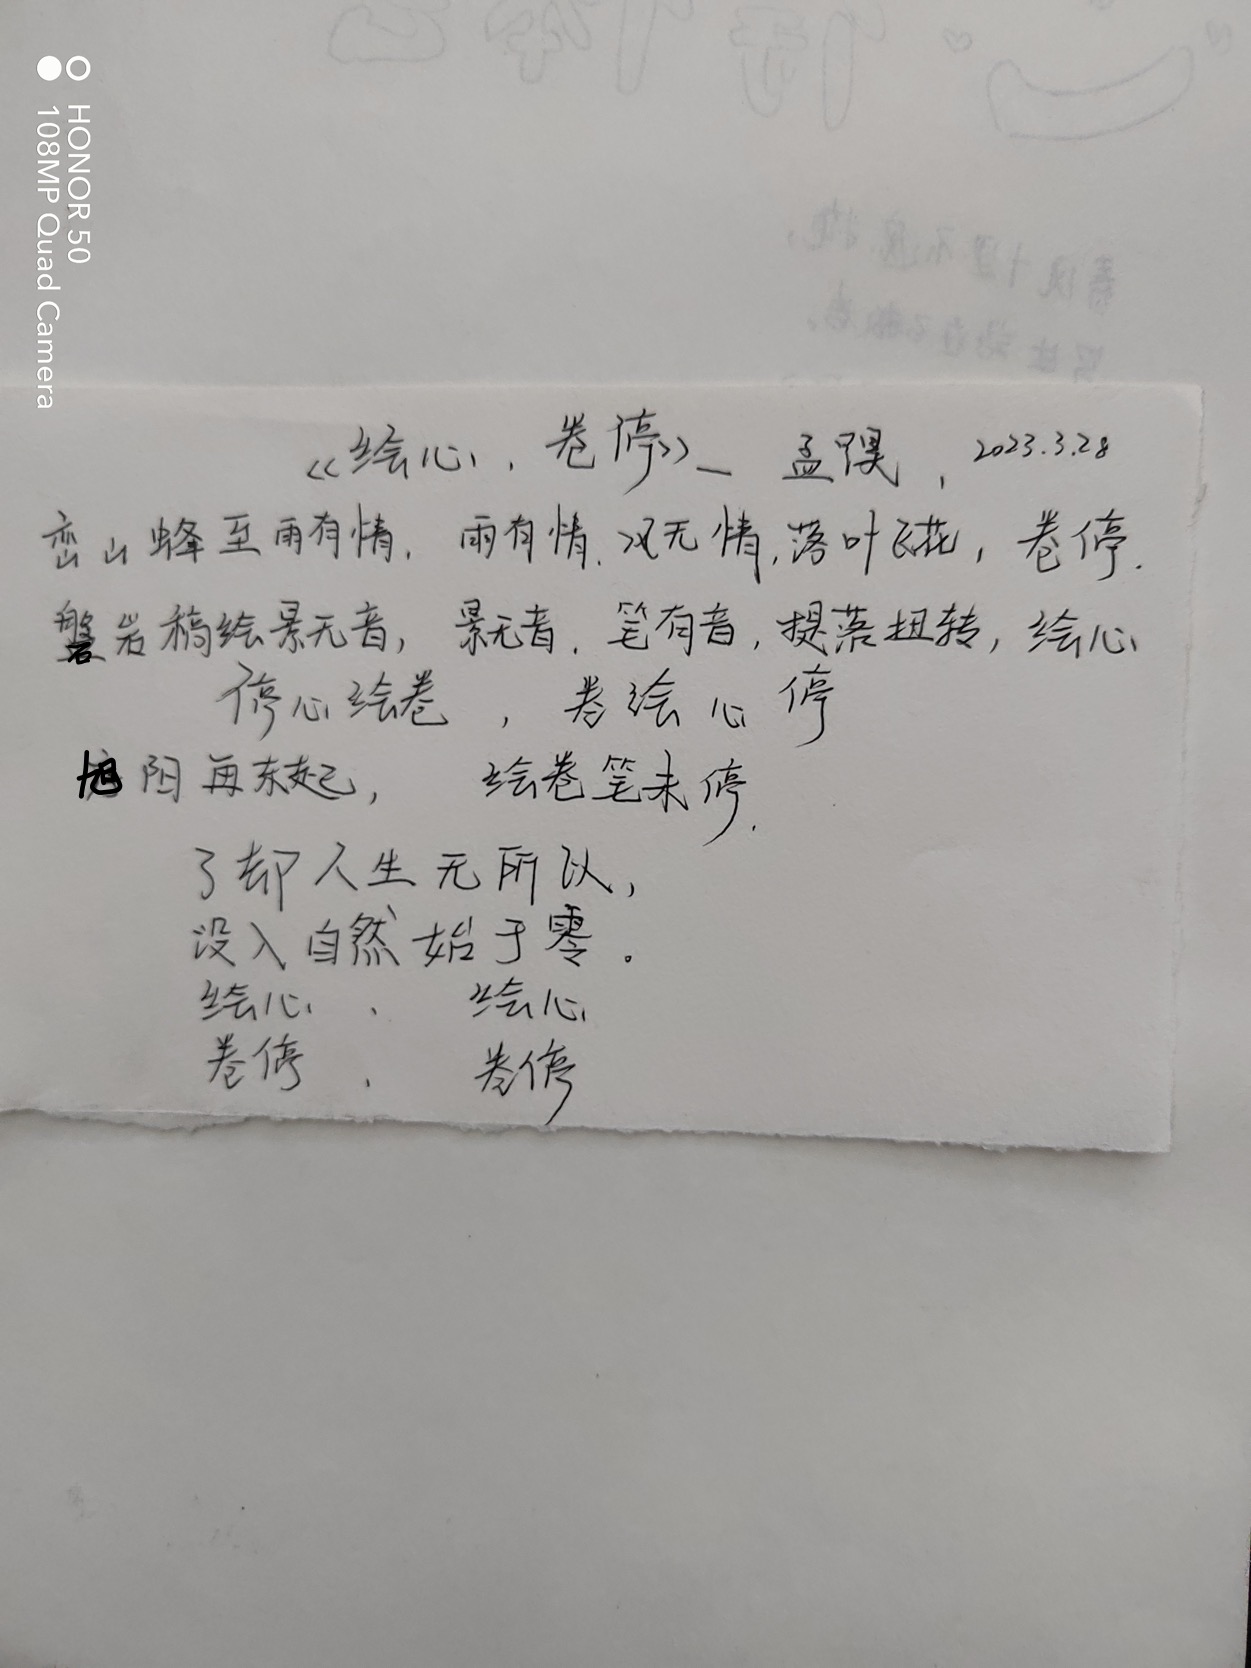 HONOR 50
108MP Quad Camera
《绘心、卷停》_ 孟, 2023.3.28
峦山蜂至雨有情, 雨有情.风无情,落叶飞花, 卷停.
磐岩稿绘景无音, 景无音. 笔有音,提落扭转, 绘心
停心绘卷 , 卷绘心停
旭阳再东起, 绘卷笔未停.
了却人生无所以,
没入自然始于零.
绘心 、 绘心
卷停 、 卷停